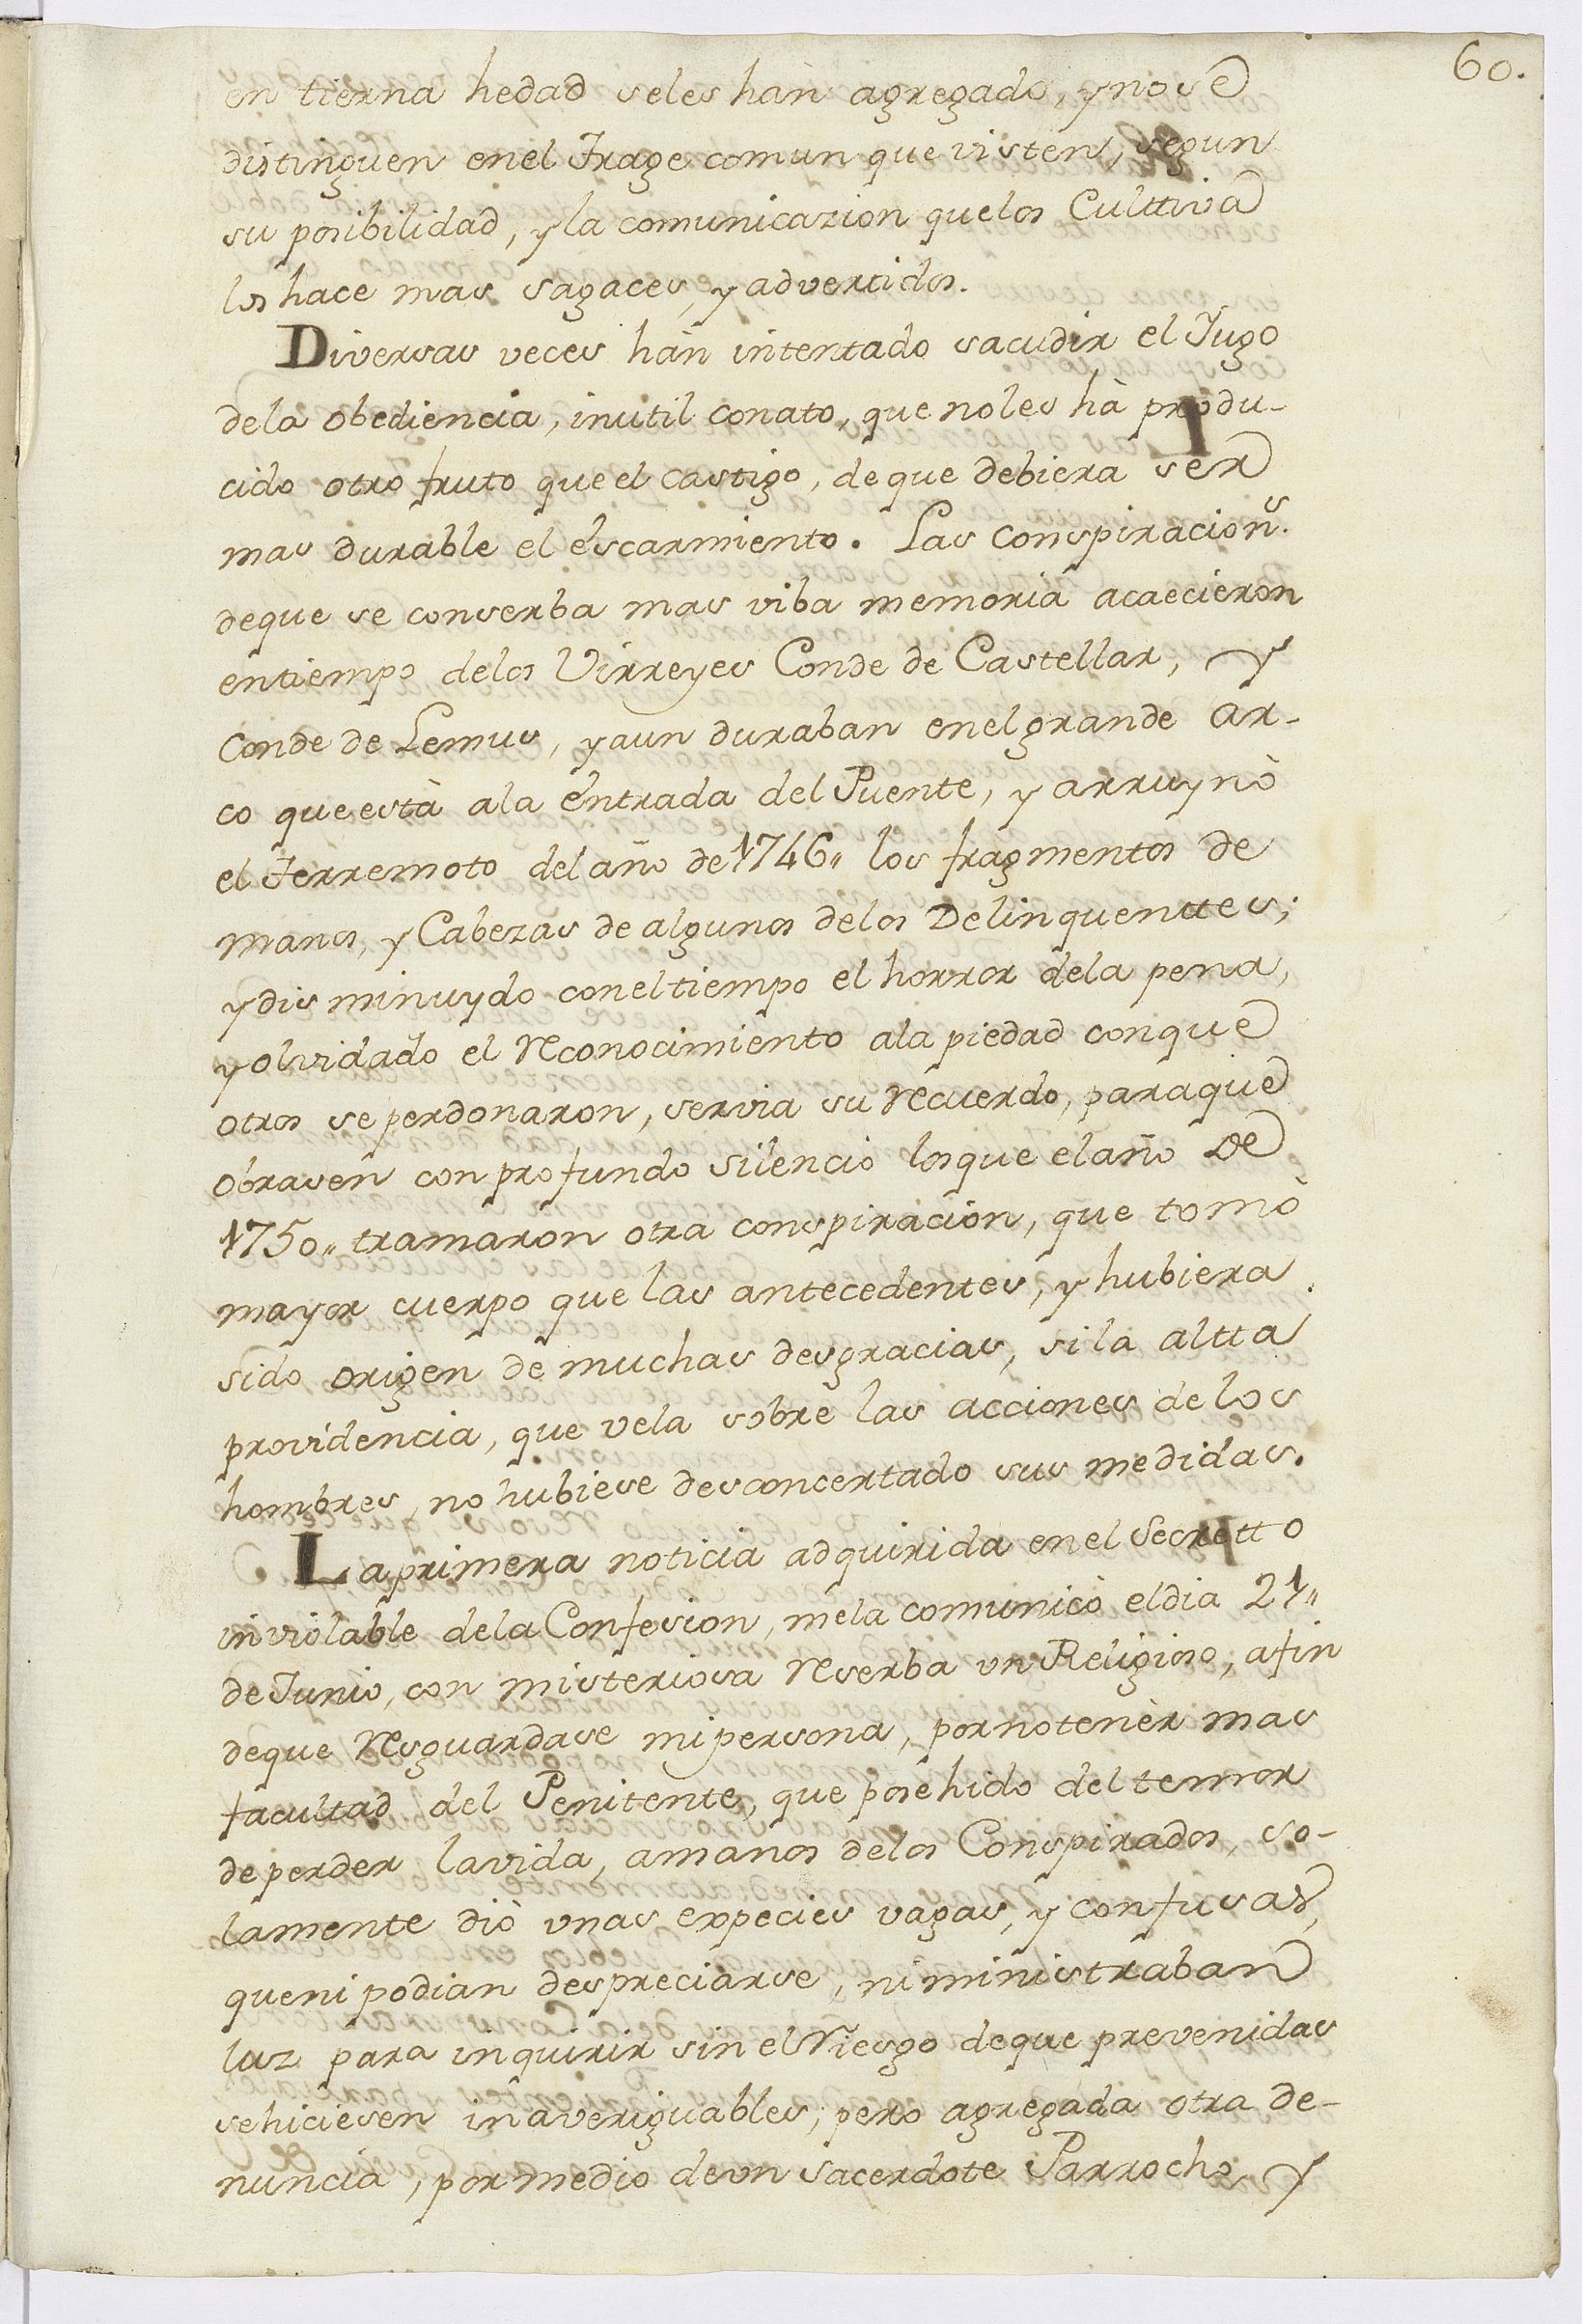 60.
en tierna hedad seles hàn agregado, y no se
distinguen enel Trage comun que visten, segun
su posibilidad, y la comunicazion quelos Culttiva
los hace mas sagaces, y advertidos.
Diversas veces hàn intentado sacudir el Jugo
dela obediencia, inutil conato, que noles hà produ-
cido otro fruto que el castigo, de que debiera ser
mas durable el escarmiento. Las conspiracions.
deque se conserba mas viba memoria acaecieron
entiempo delos Virreyes Conde de Castellar, y
Conde de Lemus, y aun duraban enel grande ar-
co que està ala entrada del Puente, y arruynò
el Terremoto del año de 1746" los fragmentos de
manos, y Cabezas de algunos delos Delinquenttes;
y disminuydo coneltiempo el horror dela pena,
y olvidado el reconocimiento ala piedad conque
otros se perdonaron, servia su recuerdo, paraque
obrasen con profundo silencio losque elaño de
1750" tramaron otra conspiracion, que tomò
mayor cuerpo que las antecedentes, y hubiera
sido origen de muchas desgracias, si la altta
providencia, que vela sobre las acciones de los
hombres, no hubiese desconcertado sus medidas.
La primera noticia adquirida en el Secretto
inviolable dela Confesion, mela comunicò eldia 21"
de Junio, con misteriosa reserba un Religioso, afin
deque resguardase mi persona, por no tenèr mas
facultad del Penitente, que posehido del temor
de perder lavida, amanos delos Conspirados, so-
lamente diò unas expecies vagas, y confusas,
queni podian despreciarse, ni ministraban
luz para inquirir sin el riesgo deque prevenidas
sehiciesen inaveriguables; pero agregada otra de-
nuncia, por medio deun Sacerdote Parrocho, y